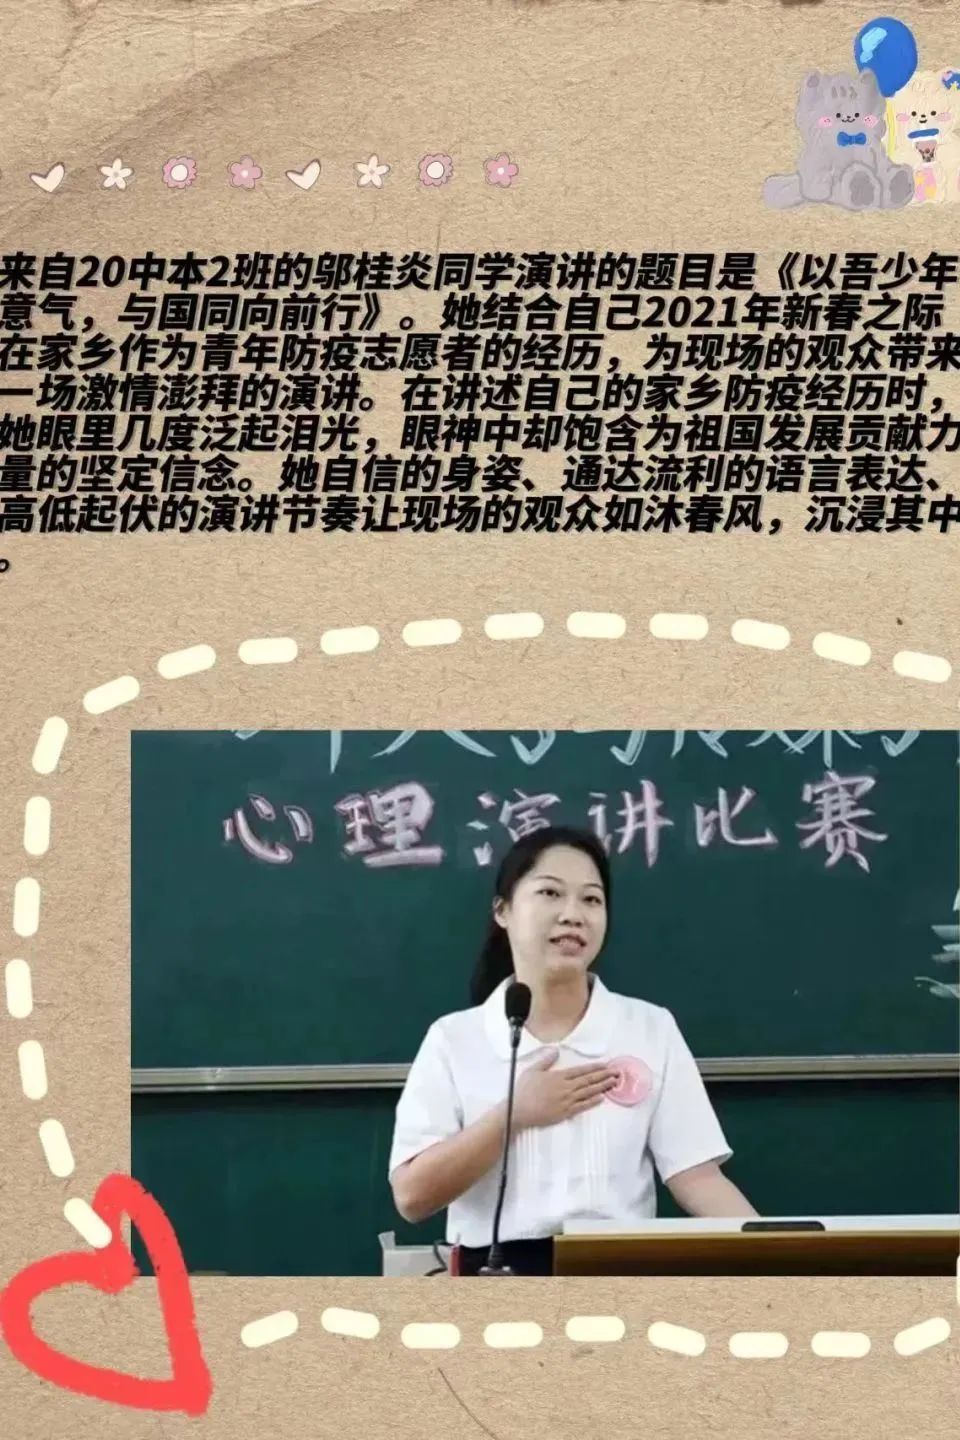 来自20中本2班的邬桂炎同学演讲的题目是《以吾少年
意气，与国同向前行》。她结合自己2021年新春之际
在家乡作为青年防疫志愿者的经历，为现场的观众带来
一场激情澎拜的演讲。在讲述自己的家乡防疫经历时，
她眼里几度泛起泪光，眼神中却饱含为祖国发展贡献力
量的坚定信念。她自信的身姿、通达流利的语言表达、
高低起伏的演讲节奏让现场的观众如沐春风，沉浸其中
。
心理演讲比赛